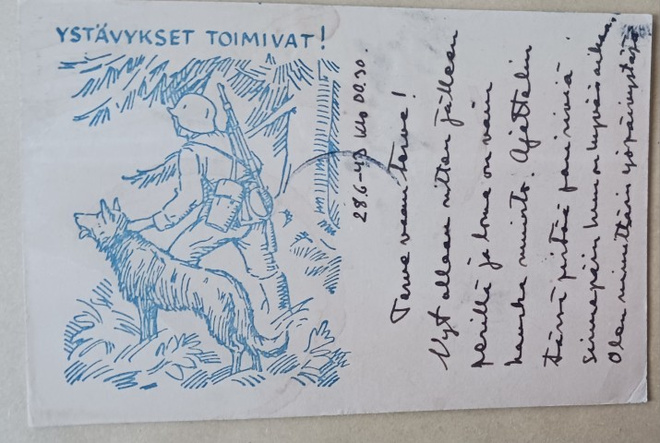 YSTÄVYKSET TOIMIVAT!
28.6-43 Klo 00.30.
Terve vaan terve!
Nyt ollaan sitten jälleen
perillä ja loma on vain
hauska muisto. Ajattelin
tässä pitää pari riviä
sinnepäin kun on hyvää aikaa,
Olen nimittäin yöpäivystäjä